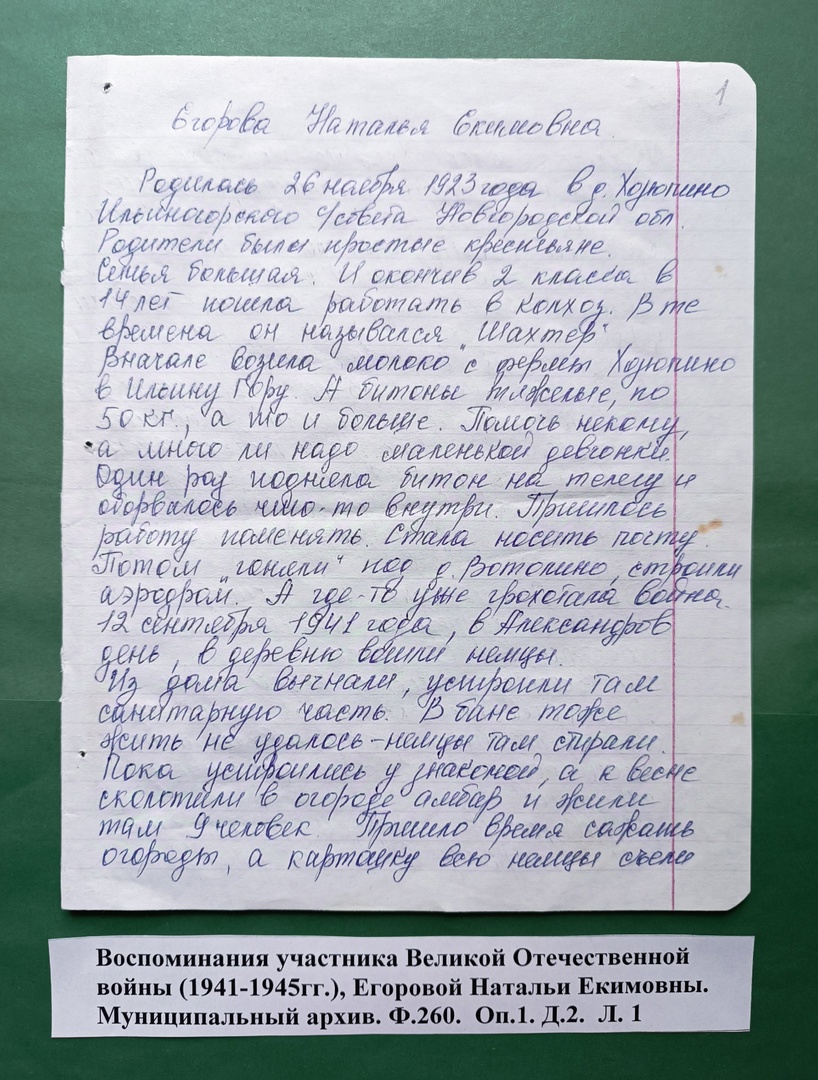 1
Егорова Наталья Екимовна
Родилась 26 ноября 1923 года в д. Хозюпино
Ильиногорского с/совета Новгородской обл.
Родители были простые крестьяне.
Семья большая. И окончив 2 класса в
14 лет пошла работать в колхоз. В те
времена он назывался "Шахтер"
Вначале возила молоко с фермы Хозюпино
в Ильину Гору. А битоны тяжелые, по
50 кг., а то и больше. Помочь некому,
а много ли надо маленькой девчонки.
Один раз подняла битон на телегу и
оборвалось что-то внутри. Пришлось
работу поменять. Стала носить почту.
Потом "гоняли" под д. Вотолино, строили
аэродром. А где-то уже грохотала война.
12 сентября 1941 года, в Александров
день, в деревню вошли немцы.
Из дома выгнали, устроили там
санитарную часть. В бане тоже
жить не удалось - немцы там стирали.
Пока устроились у знакомой, а к весне
сколотили в огороде амбар и жили
там 9 человек. Пришло время сажать
огороды, а картошку всю немцы съели
Воспоминания участника Великой Отечественной
войны (1941-1945гг.), Егоровой Натальи Екимовны.
Муниципальный архив. Ф.260. Оп.1. Д.2. Л. 1